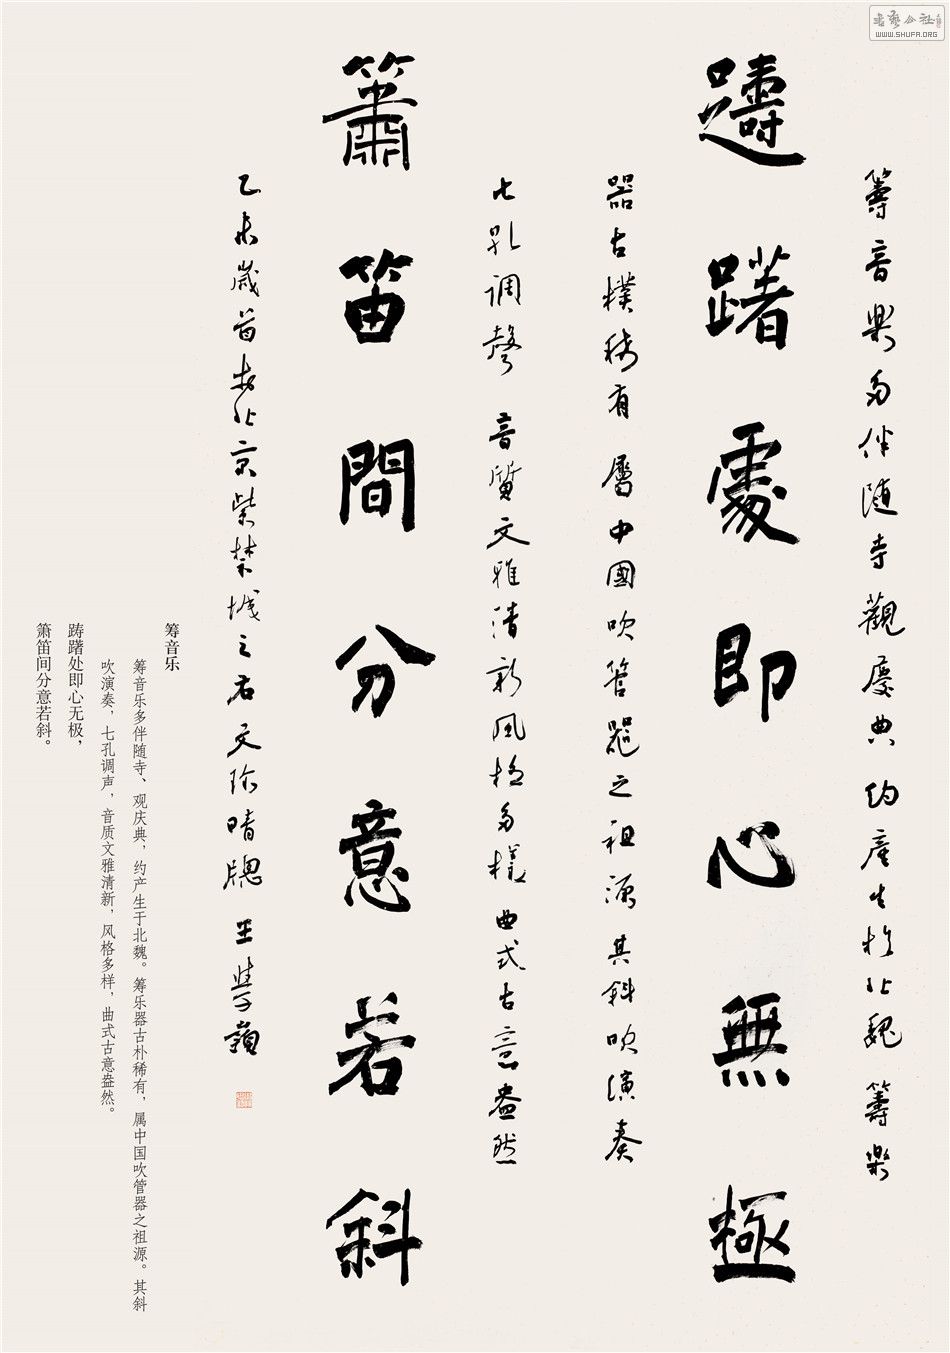 書藝公社
WWW.SHUFA.ORG
籌音樂多伴随寺觀慶典 约産生於北魏 籌樂
躊躇處即心無極
器古樸稀有 屬中國吹管器之祖源 其斜吹演奏
七孔调聲 音質文雅清新 風格多樣 曲式古意盎然
箫笛間分意若斜
乙未歲首於北京紫禁城之右文珍晴牕 王學嶺
筹音乐
筹音乐多伴随寺、观庆典，约产生于北魏。筹乐器古朴稀有，属中国吹管器之祖源。其斜
吹演奏，七孔调声，音质文雅清新，风格多样，曲式古意盎然。
踌躇处即心无极，
箫笛间分意若斜。